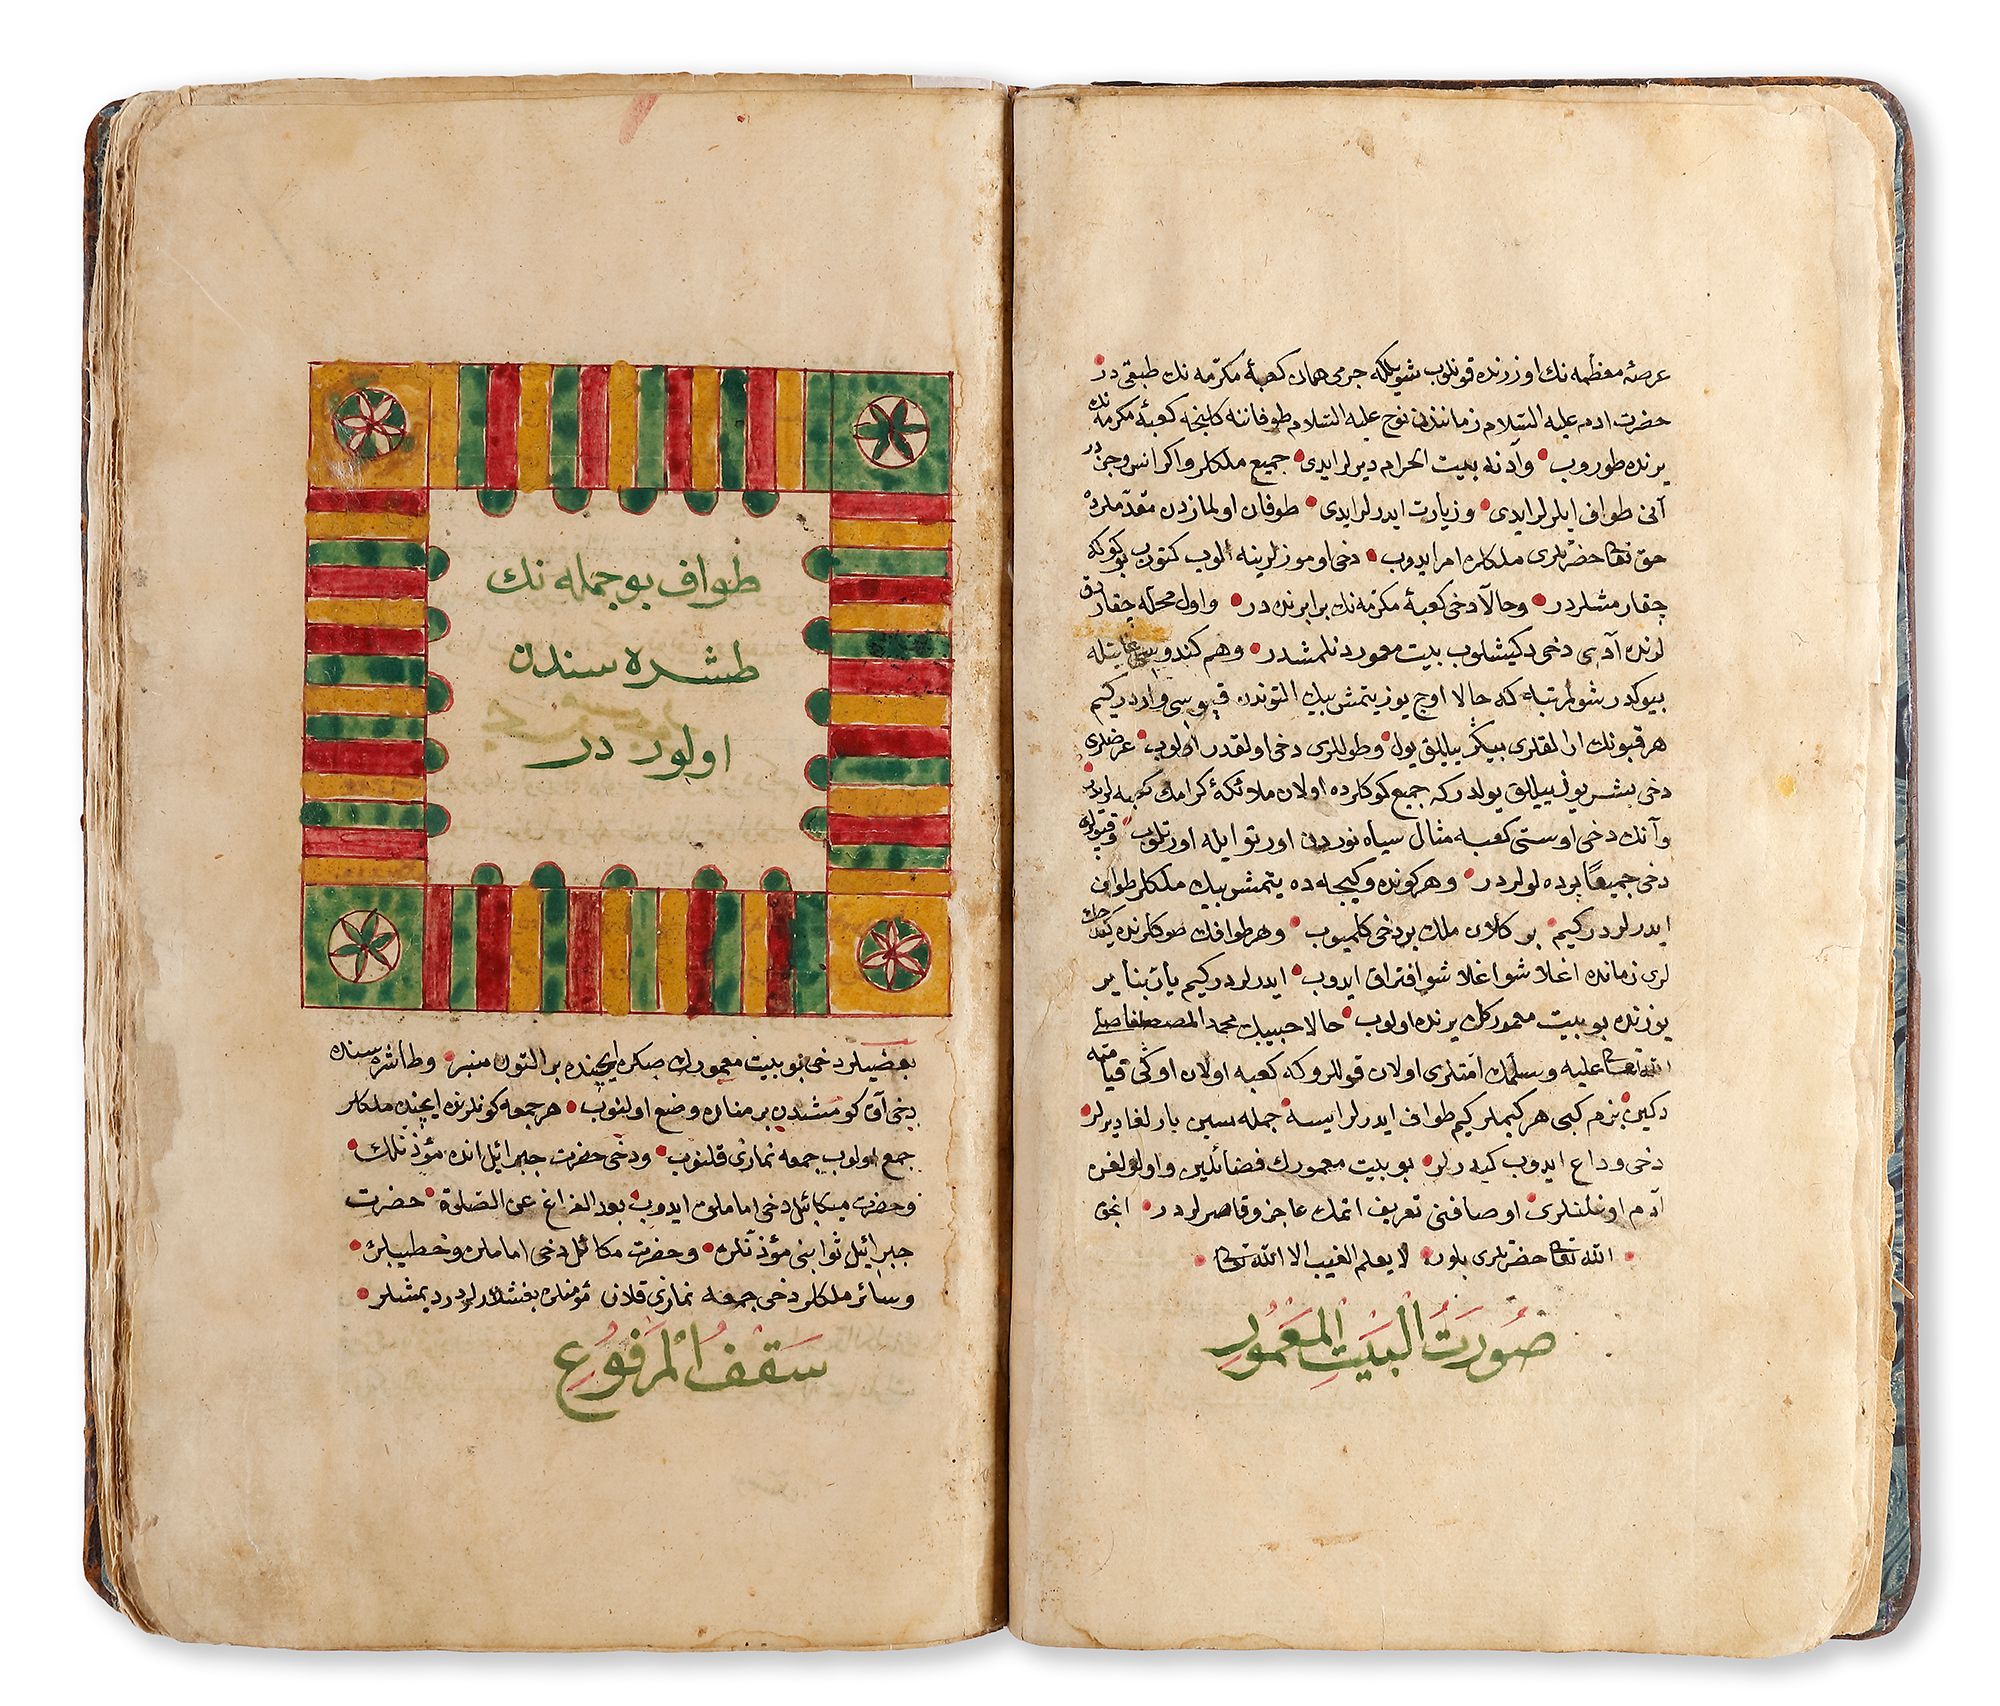 عرصهٔ معظمه نك اوزرنده قونلوب شويلكه جرمی همان كعبهٔ مكرمه نك طبقی در
حضرت ادم عليه السلام زمانندن نوح عليه السلام طوفاننه كلنجه كعبهٔ مكرمه نك
يرنده طوروب وآدنه بيت الحرام ديرلر ايدی جميع ملكلر واكر انس وجن در
آنی طواف ايلرلر ايدی وزيارت ايدرلر ايدی طوفان اولمازدن مقدّم
حق تعالی حضرتلری ملكلره امر ايدوب دخی اوموزلرينه الوب كتوروب كوكه
چقارمشلردر وحالا دخی كعبهٔ مكرمه نك برابرنده در واول محله چقاردق
لرنده آدی دخی دكيشلوب بيت معمور دنلمشدر وهم كندوسی غايتله
بيوكدر شول مرتبه كه حالا اوچ يوز يتمش بيك التوندن قپوسی واردركيم
هر قپونك ارالقلری بيكر ييللق يول وطوللری دخی اولقدر اطلوب عرضلری
دخی بشر يوز ييللق يولدركه جميع كوكلرده اولان ملائكهٔ كرامك كعبه لريدر
وآنك دخی اوستی كعبه مثال سياه نوردن اورتو ايله اورتلوب وقپولری
دخی جميعًا پرده لولردر وهر كونده وكيجه ده يتمش بيك ملكلر طواف
ايدرلردركيم بر كلان ملك بر دخی كلميوب وهر طوافك صوكلرنده كيده جك
لری زمانده اغلاشو اغلاشو افتراق ايدوب ايدرلردركيم يا ربنا ير
يوزنده بو بيت معمورك يرنده اولوب حالا حبيبك محمد المصطفی صلی
الله تعالی عليه وسلمك امتلری اولان قوللروكه كعبه اولان اوكی قيامته
دكين بزم كبی هر كيملركيم طواف ايدرلر ايسه جمله سين يارلغا ديرلر
دخی وداع ايدوب كيدرلر بو بيت معمورك فضائلين واولولغن
آدم اوغلنلری اوصافنی تعريف اتمك عاجز وقاصرلردر انجق
الله تعالی حضرتلری بلور لا يعلم الغيب الا الله تعالی
صُورَتُ الْبَيْتِ الْمَعْمُورِ
طواف بو جمله نك
طشره سندن
اولور در
بعضيلر دخی بو بيت معمورك ايچنده بر التون منبر وطاشره سنده
دخی آق كومشدن بر مناره وضع اولنوب هر جمعه كونلرنده ايچنده ملكلر
جمع اولوب جمعه نمازی قلنوب ودخی حضرت جبرائيل انده مؤذنلك
وحضرت ميكائيل دخی اماملق ايدوب بعد الفراغ عن الصلوة حضرت
جبرائيل ثوابنی مؤذنلره وحضرت مكائل دخی امامله وخطيبلره
وسائر ملكلر دخی جمعه نمازی قلان مؤمنلره بغشلارلردر ديمشلر
سَقْفُ الْمَرْفُوعِ